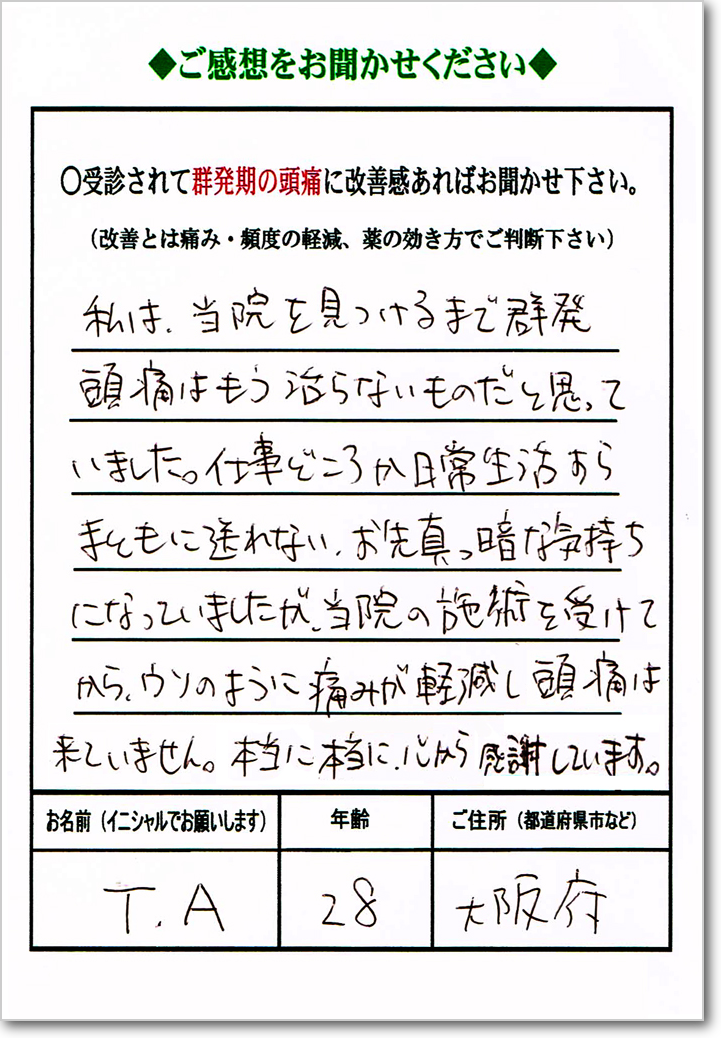 ◆ご感想をお聞かせください◆
〇受診されて群発期の頭痛に改善感あればお聞かせ下さい。
（改善とは痛み・頻度の軽減、薬の効き方でご判断下さい）
私は、当院を見つけるまで群発
頭痛はもう治らないものだと思って
いました。仕事どころか日常生活すら
まともに送れない、お先真っ暗な気持ち
になっていましたが、当院の施術を受けて
から、ウソのように痛みが軽減し頭痛は
来ていません。本当に本当に、心から感謝しています。
お名前（イニシャルでお願いします） 年齢 ご住所（都道府県市など）
T.A 28 大阪府